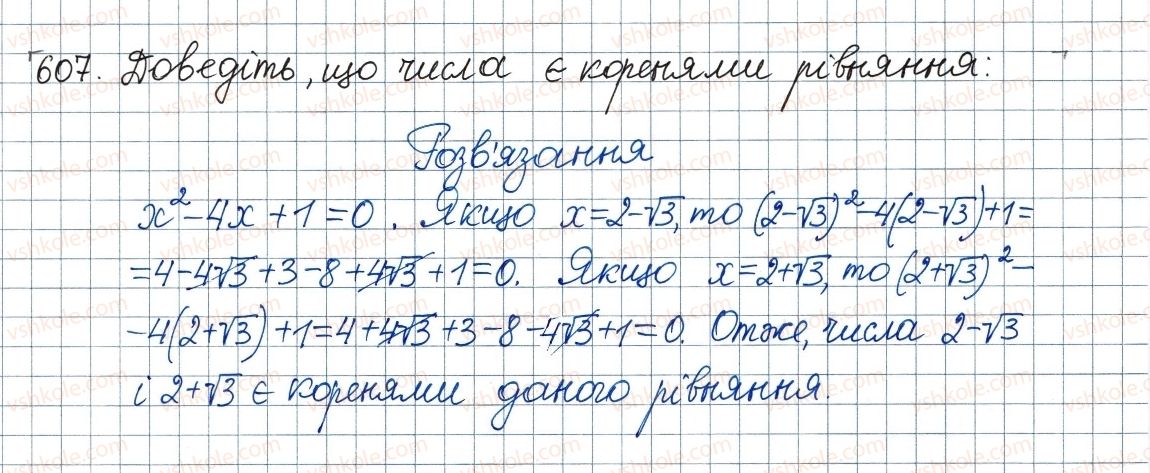 607. Доведіть, що числа є коренями рівняння:
Розв'язання
x² - 4x + 1 = 0. Якщо x = 2 - √3, то (2 - √3)² - 4(2 - √3) + 1 =
= 4 - 4√3 + 3 - 8 + 4√3 + 1 = 0. Якщо x = 2 + √3, то (2 + √3)² -
- 4(2 + √3) + 1 = 4 + 4√3 + 3 - 8 - 4√3 + 1 = 0. Отже, числа 2 - √3
і 2 + √3 є коренями даного рівняння.